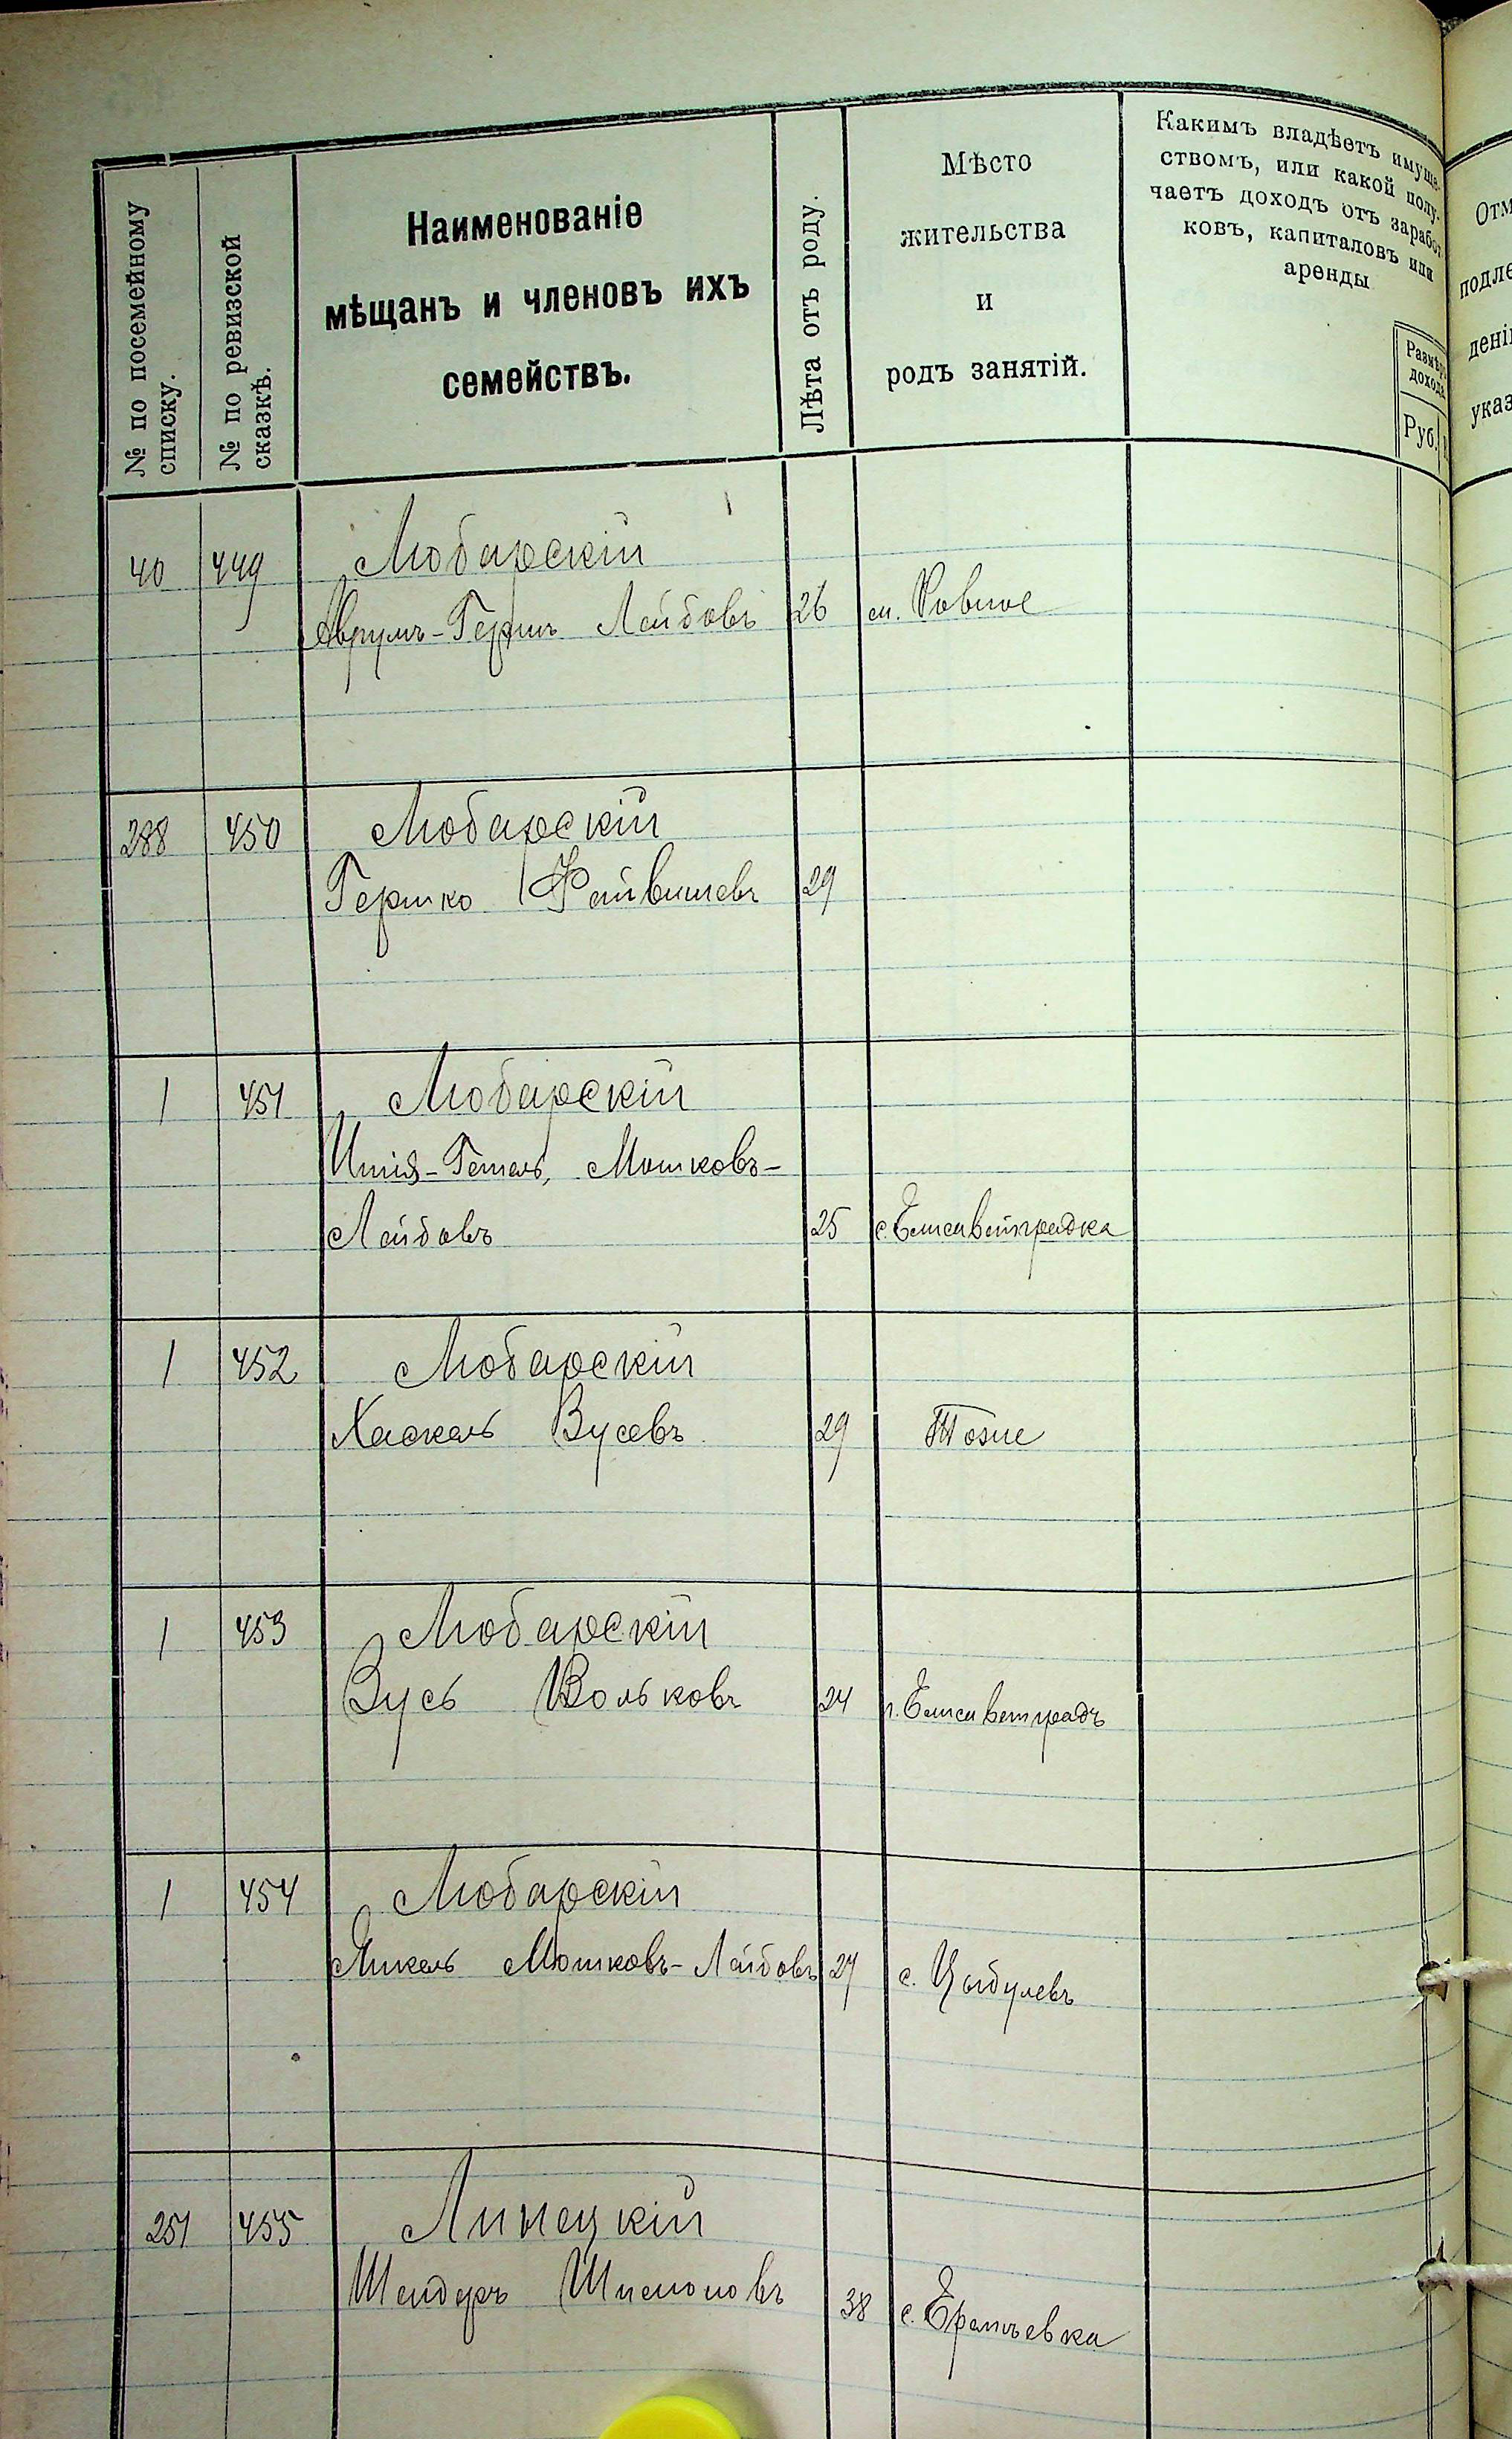 № по посемейному списку.
№ по ревизской сказкѣ.
Наименованіе
мѣщанъ и членовъ ихъ
семействъ.
Лѣта отъ роду.
Мѣсто
жительства
и
родъ занятій.
Какимъ владѣетъ имуще-
ствомъ, или какой полу-
чаетъ доходъ отъ заработ-
ковъ, капиталовъ или
аренды
Размѣръ
дохода
Руб.
40 449 Любарскій
Аврумъ-Гершъ Лейбовъ 26 м. Ровное
288 450 Любарскій
Гершко Файвишевъ 29
1 451 Любарскій
Мошковъ-
Лейбовъ 25 с. Елисаветградка
1 452 Любарскій
Хаскель Вусевъ 29 Тоже
1 453 Любарскій
Зусь Вольковъ 24 г. Елисаветградъ
1 454 Любарскій
Янкель Мошковъ-Лейбовъ 27 с. Цыбулевъ
251 455 Линецкій
Шендеръ 38 с.